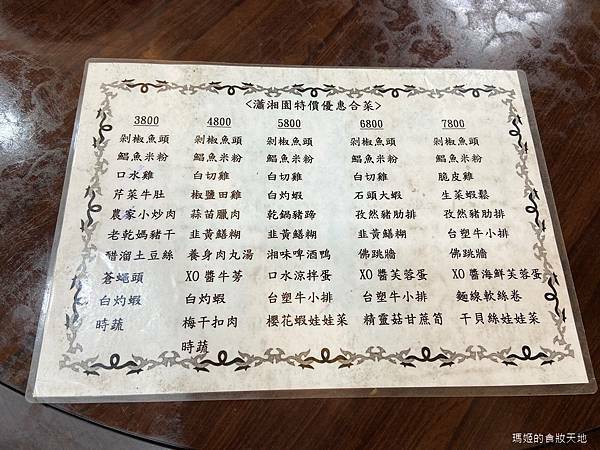 <瀟湘園特價優惠合菜>
3800 4800 5800 6800 7800
剁椒魚頭 剁椒魚頭 剁椒魚頭 剁椒魚頭 剁椒魚頭
鯧魚米粉 鯧魚米粉 鯧魚米粉 鯧魚米粉 鯧魚米粉
口水雞 白切雞 白切雞 白切雞 脆皮雞
芹菜牛肚 椒鹽田雞 白灼蝦 石頭大蝦 生菜蝦鬆
農家小炒肉 蒜苗臘肉 乾鍋豬蹄 孜然豬肋排 孜然豬肋排
老乾媽豬干 韭黃鱔糊 韭黃鱔糊 韭黃鱔糊 台塑牛小排
醋溜土豆絲 養身肉丸湯 湘味啤酒鴨 佛跳牆 佛跳牆
蒼蠅頭 XO醬牛蒡 口水涼拌蛋 XO醬芙蓉蛋 XO醬海鮮芙蓉蛋
白灼蝦 白灼蝦 台塑牛小排 台塑牛小排 麵線軟絲卷
時蔬 梅干扣肉 櫻花蝦娃娃菜 精靈菇甘蔗筍 干貝絲娃娃菜
時蔬
瑪姬的食妝天地